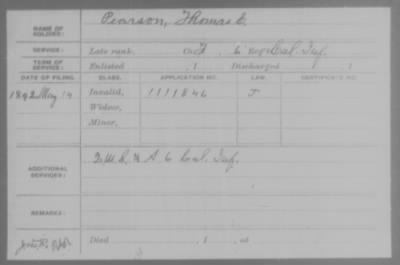 NAME OF SOLDIER: Pearson, Thomas E.
SERVICE: Late rank, Co. F, 6 Reg't Cal. Inf.
TERM OF SERVICE: Enlisted , 1 Discharged , 1
DATE OF FILING. CLASS. APPLICATION NO. LAW. CERTIFICATE NO.
1892 May 14 Invalid, 1111846 J
Widow,
Minor,
ADDITIONAL SERVICES: & A 6 Cal. Inf.
REMARKS:
Died , 1 , at